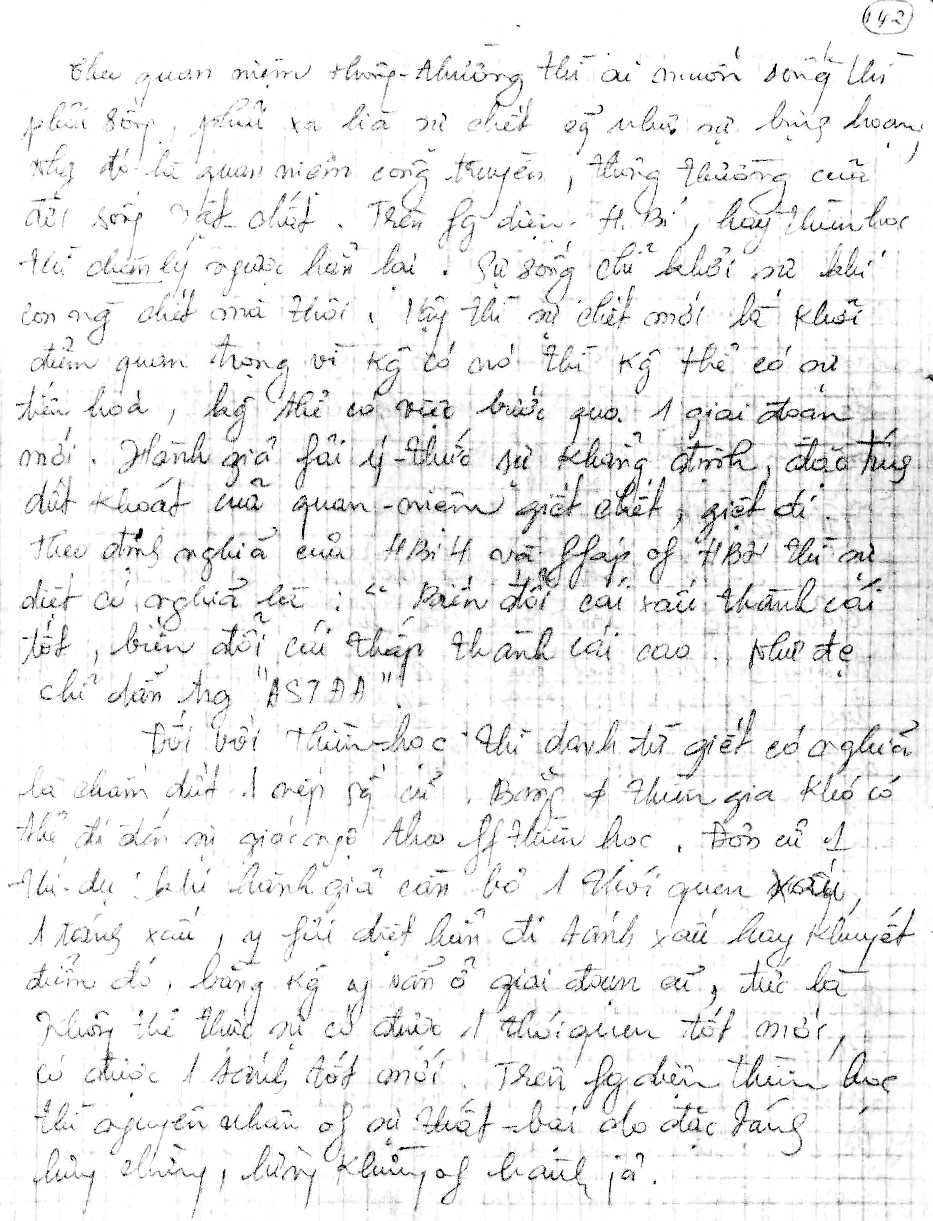 142
Theo quan niệm thông-thường thì ai muốn sống thì
phải sống, phải xa lìa sự chết cg như sự bịnh hoạn,
nhg đó là quan niệm cộng truyền, thông thường của
đời sống vật-chất. Trên fg diện H. Bí, hay thiền học
thì chơn lý ngược hẳn lại. Sự sống chỉ khởi sự khi
con ng chết mà thôi. Vậy thì sự chết mới là khởi
điểm quan trọng vì kg có nó thì kg thể có sự
tiến hoá, kg thể có việc bước qua 1 giai đoạn
mới. Hành giả fải ý-thức sự khẳng định, đặc tính
dứt khoát của quan-niệm giết chết, giết đi.
Theo định nghĩa của HBiH và ffáp of HBH thì sự
diệt có nghĩa là : " Biến đổi cái xấu thành cái
tốt, biến đổi cái thấp thành cái cao. Như đc
chỉ dẫn trg "ASTĐA"!
Đối với thiền-học thì danh từ giết có nghĩa
là chấm dứt 1 nếp sg cũ. Bằng thiền gia khó có
thể đi đến sự giác ngộ theo ff thiền học. Đơn cử 1
thí-dụ : khi hành giả cần bỏ 1 thói quen xấu,
1 tánh xấu, y fải diệt hẳn đi tánh xấu hay khuyết
điểm đó, bằng kg y vẫn ở giai đoạn cũ, tức là
không thể thực sự có được 1 thói quen tốt mới,
có được 1 tánh tốt mới. Trên fg diện thiền học
thì nguyên nhân of sự thất-bại do đặc tánh
lừng chừng, lừng khừng of hành jả.